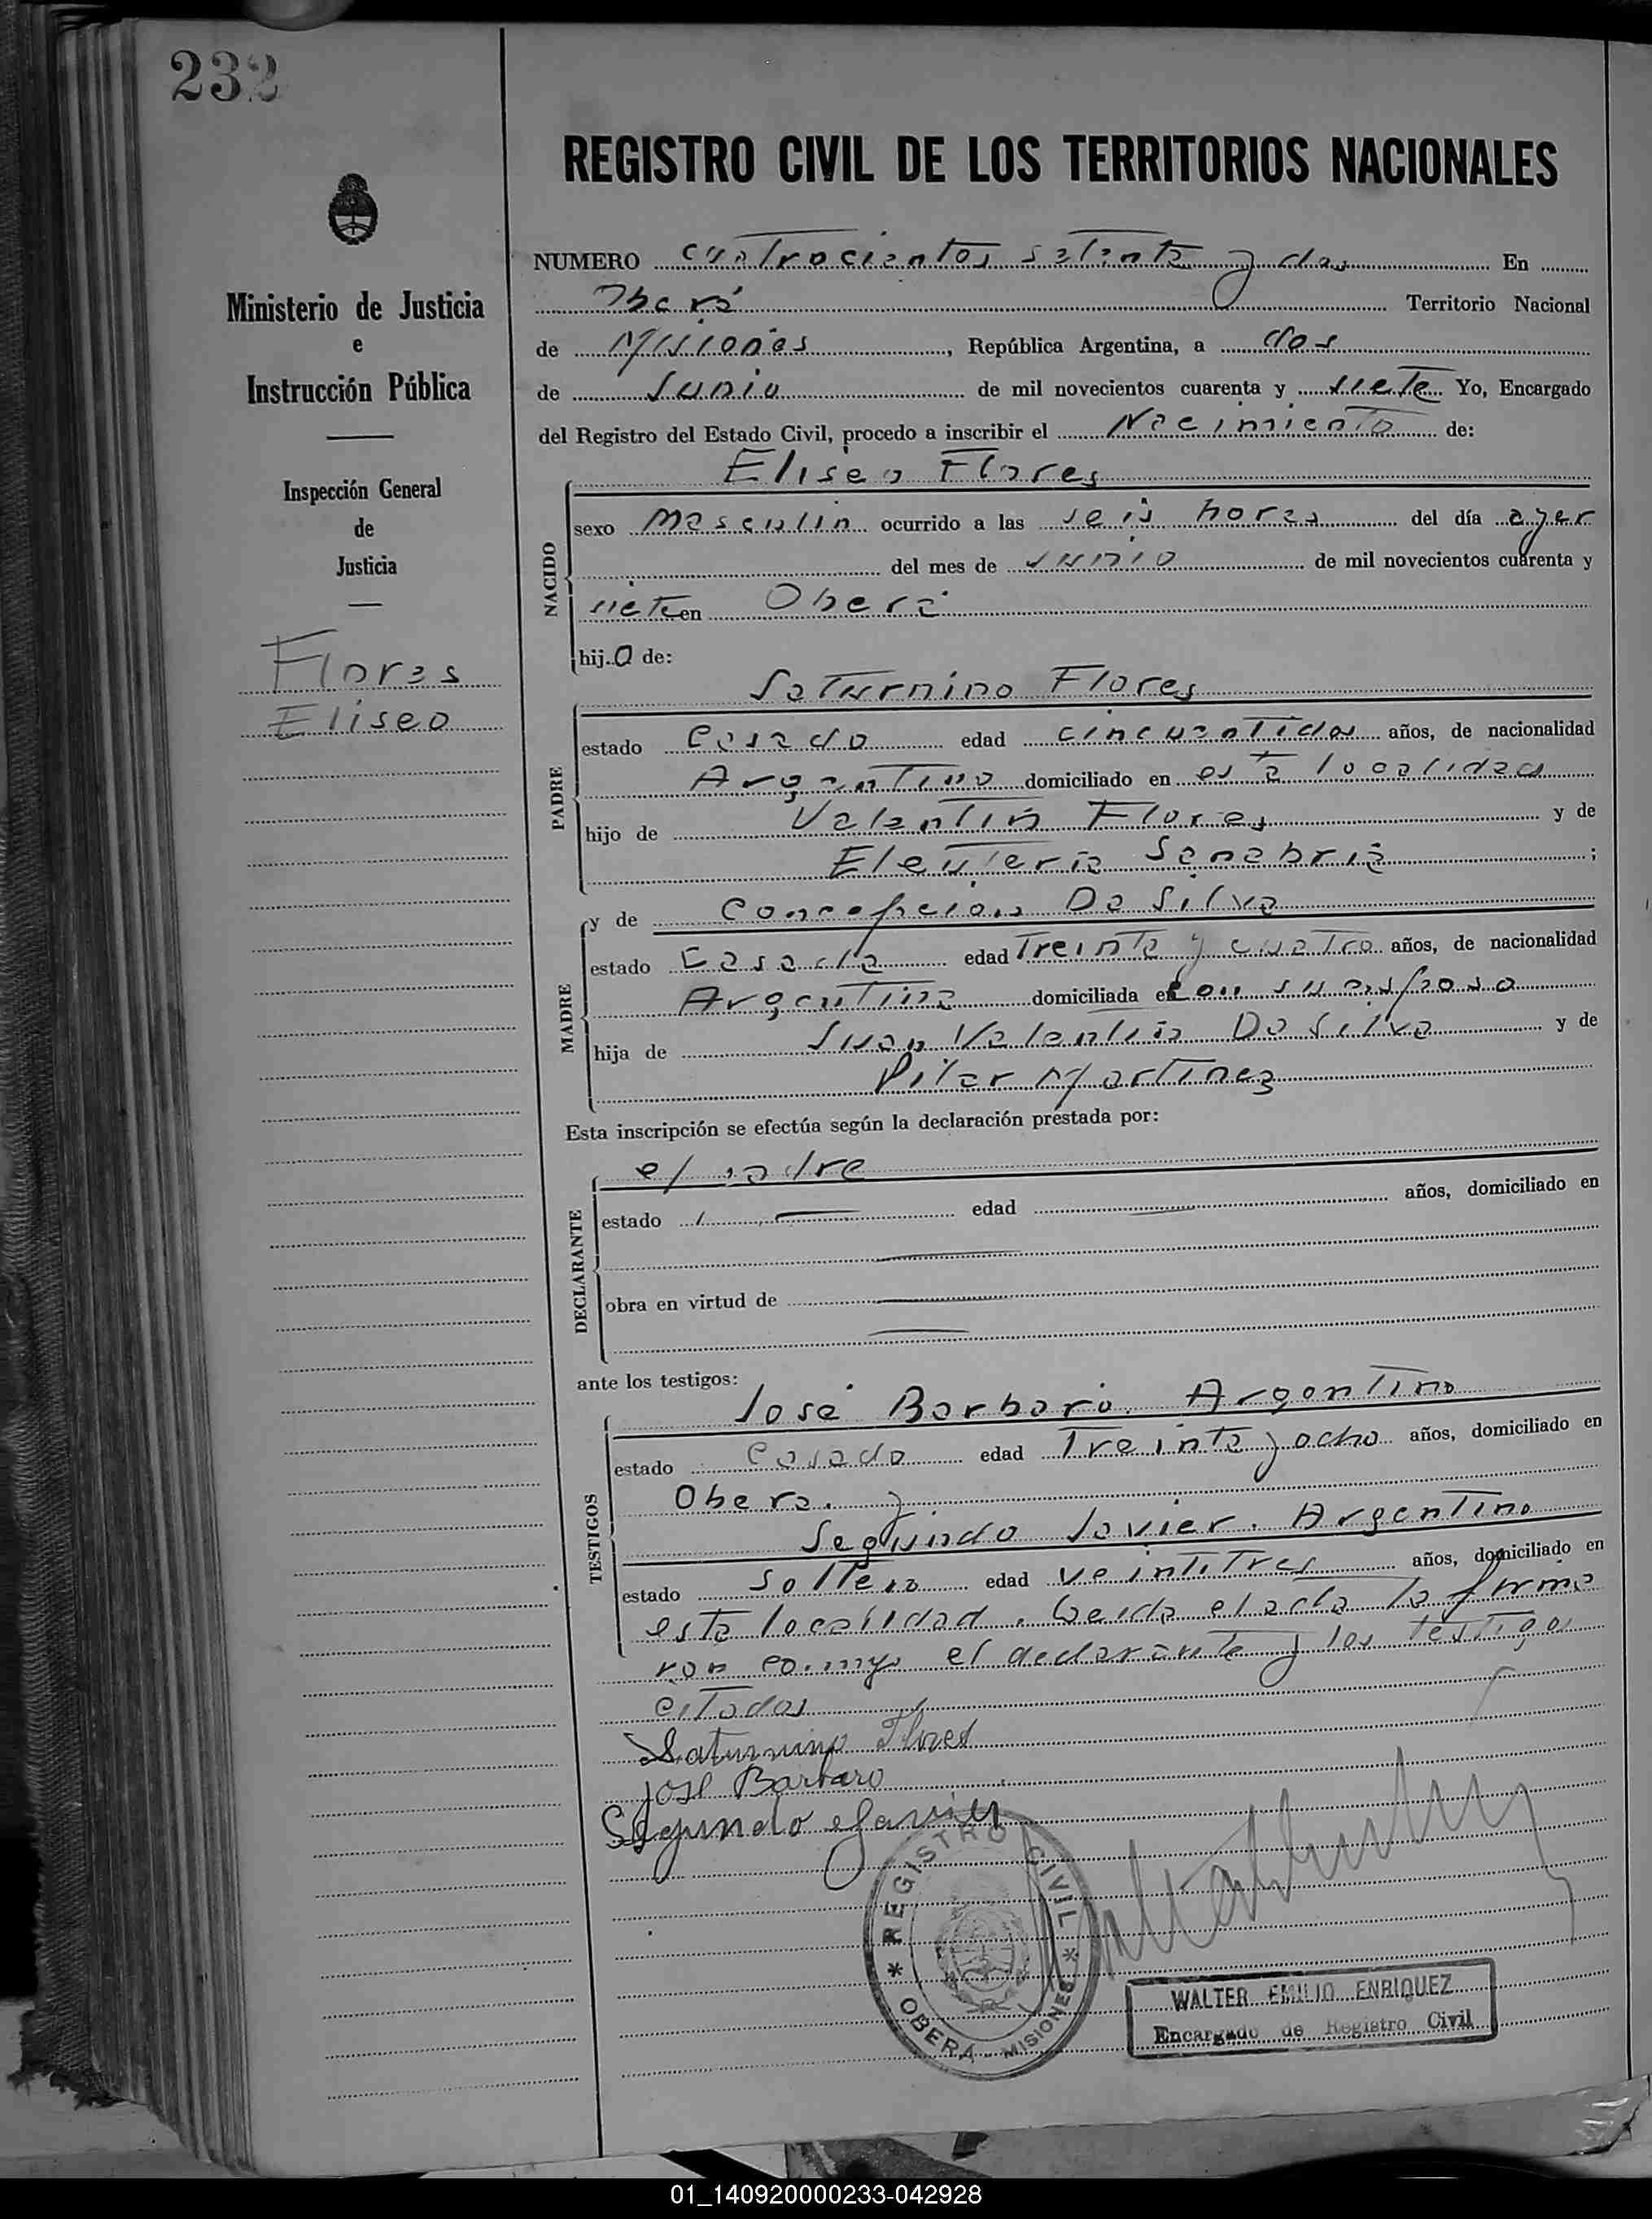 232
REGISTRO CIVIL DE LOS TERRITORIOS NACIONALES
Ministerio de Justicia
e
Instrucción Pública
Inspección General
de
Justicia
Flores
Eliseo
NUMERO cuatrocientos setenta y dos En
Oberá Territorio Nacional
de Misiones, República Argentina, a dos
de Junio de mil novecientos cuarenta y siete Yo, Encargado
del Registro del Estado Civil, procedo a inscribir el Nacimiento de:
Eliseo Flores
NACIDO
sexo masculin ocurrido a las seis horas del día ayer
del mes de Junio de mil novecientos cuarenta y
siete en Oberá
hijo de:
PADRE
Saturnino Flores
estado Casado edad cincuentidos años, de nacionalidad
Argentino domiciliado en esta localidad
hijo de Valentin Flores y de
Eleuteria Sanabria;
MADRE
y de Concepcion Da Silva
estado Casada edad treinta y cuatro años, de nacionalidad
Argentina domiciliada en con su esposo
hija de Juan Valentin Da Silva y de
Pilar Martinez
Esta inscripción se efectúa según la declaración prestada por:
DECLARANTE
el padre
estado edad años, domiciliado en
obra en virtud de
ante los testigos:
TESTIGOS
José Barbaro. Argentino
estado Casado edad Treinta y ocho años, domiciliado en
Obera. y
Segundo Javier. Argentino
estado soltero edad veintitres años, domiciliado en
esta localidad. Leida el acta la firma
ron conmigo el declarante y los testigos
citados
Saturnino Flores
José Barbaro
Segundo Javier
REGISTRO CIVIL
OBERA - MISIONES
WALTER EMILIO ENRIQUEZ
Encargado de Registro Civil
01_140920000233-042928